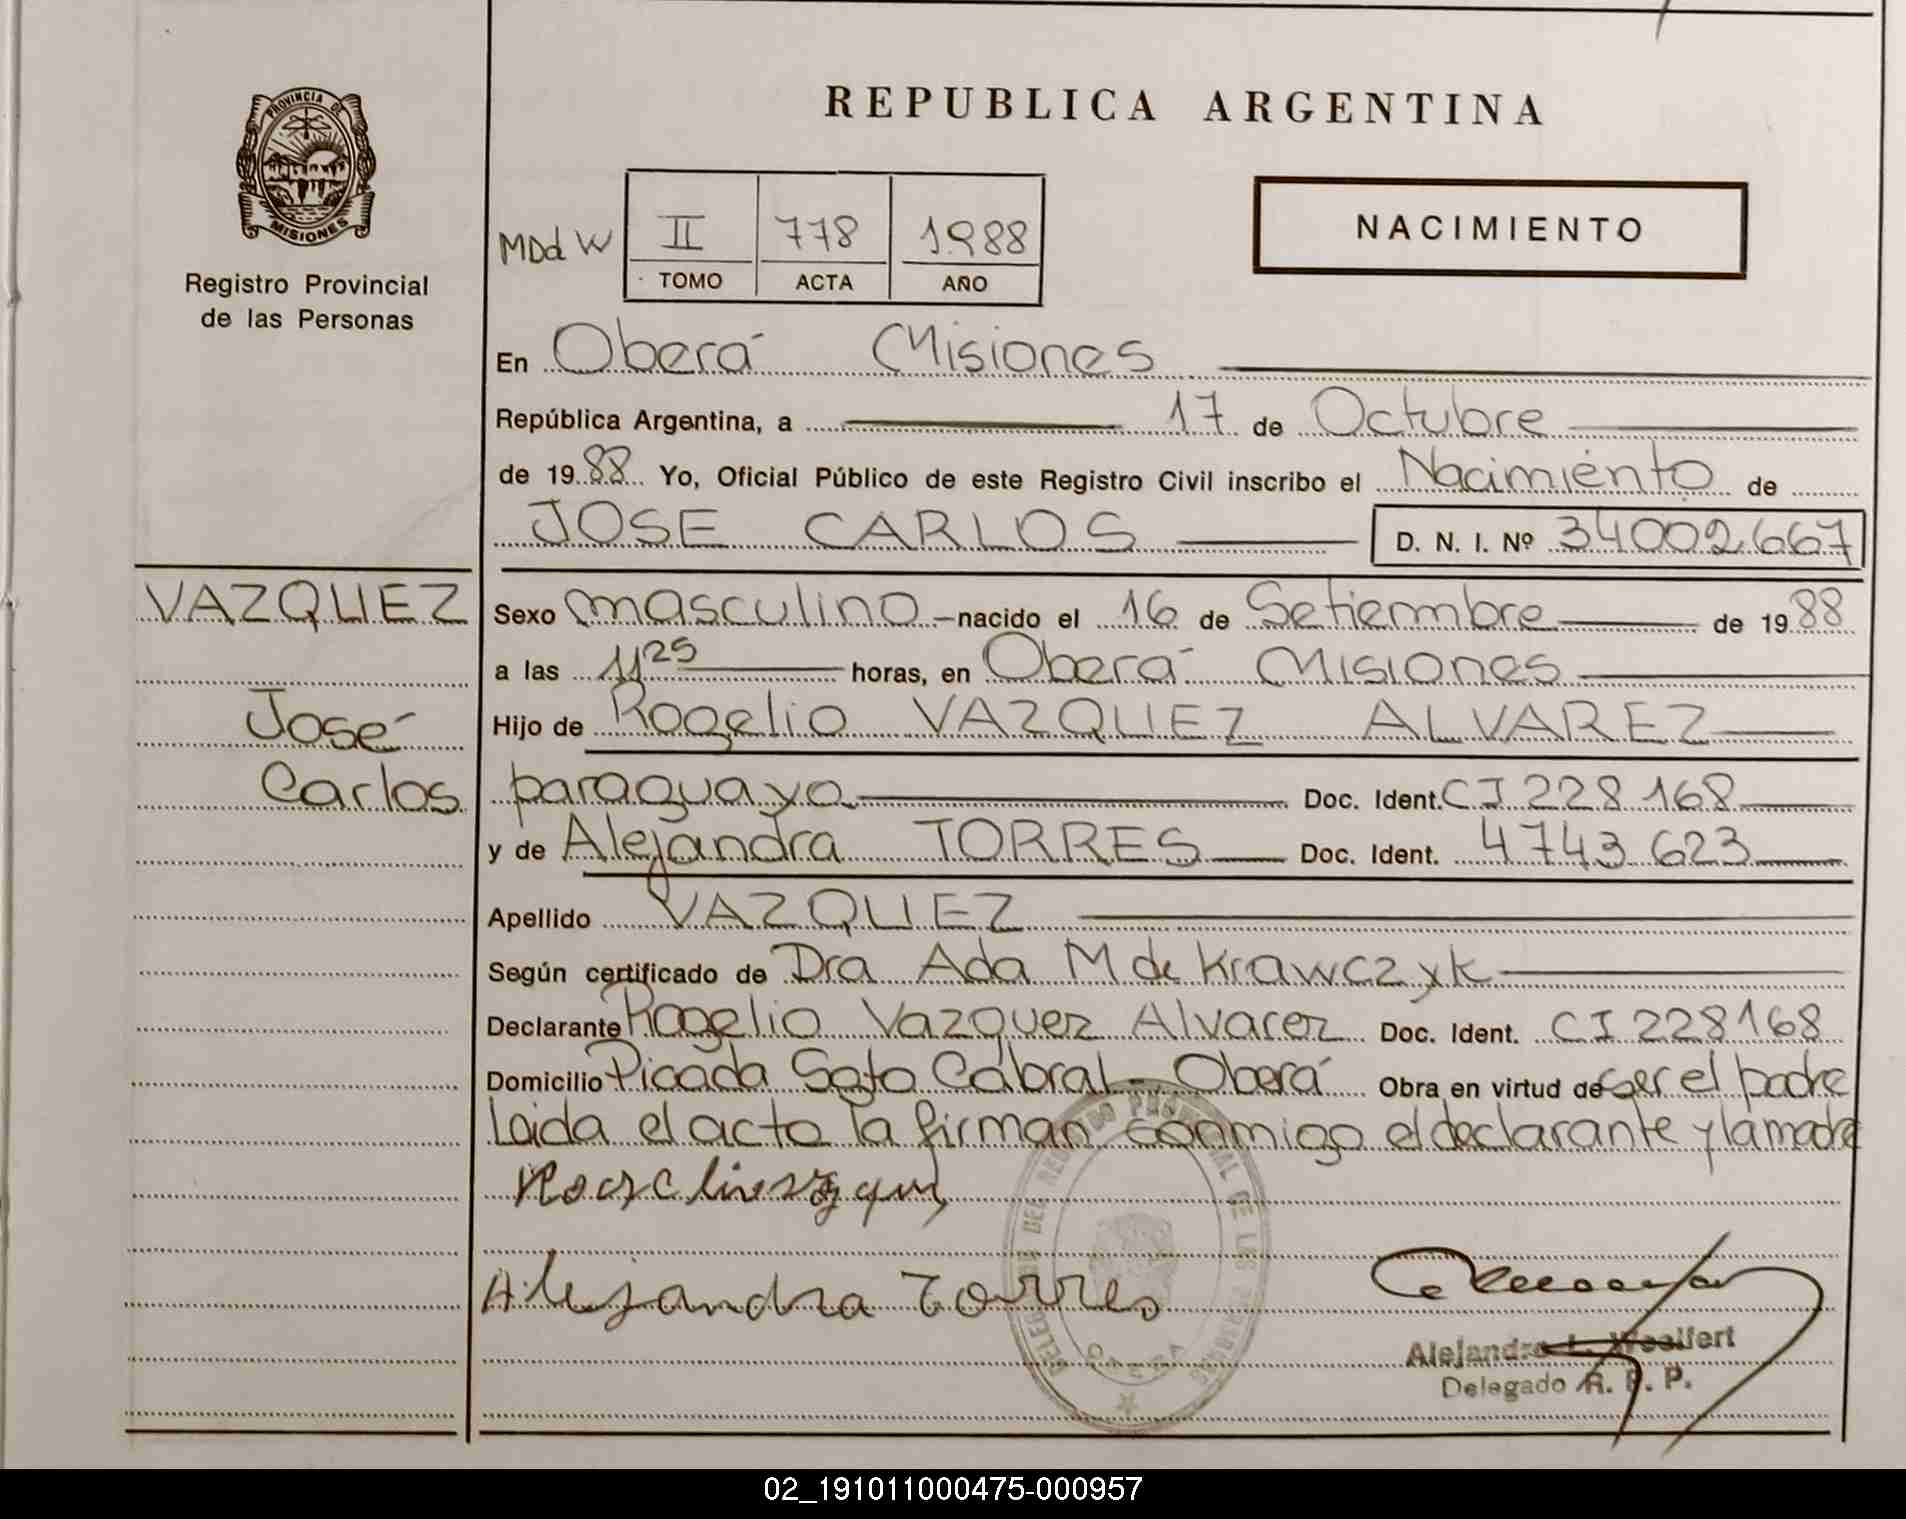 PROVINCIA DE
MISIONES
Registro Provincial
de las Personas
REPUBLICA ARGENTINA
NACIMIENTO
MDdW II 778 1988
TOMO ACTA AÑO
En Oberá Misiones
República Argentina, a 17 de Octubre
de 1988 Yo, Oficial Público de este Registro Civil inscribo el Nacimiento de
JOSE CARLOS D. N. I. Nº 34002667
VAZQUEZ
José
Carlos
Sexo masculino nacido el 16 de Setiembre de 1988
a las 11 25 horas, en Oberá Misiones
Hijo de Rogelio VAZQUEZ ALVAREZ
paraguayo Doc. Ident. CI 228168
y de Alejandra TORRES Doc. Ident. 4743623
Apellido VAZQUEZ
Según certificado de Dra Ada M de Krawczyk
Declarante Rogelio Vazquez Alvarez Doc. Ident. CI 228168
Domicilio Picada Soto Cabral - Oberá Obra en virtud de ser el padre
Leida el acta la firman conmigo el declarante y la madre
Alejandra Torres
Alejandro L. Woolfert
Delegado R. P. P.
02_191011000475-000957